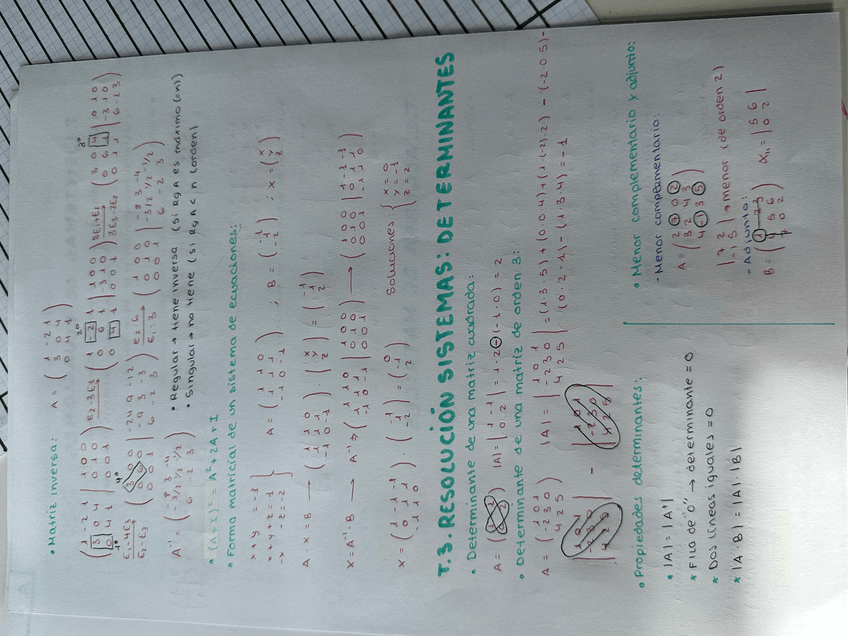 • Matriz inversa: A = ( 1 -2 1 / 3 0 4 / 0 4 1 )
( 1 -2 1 | 1 0 0 / 3 0 4 | 0 1 0 / 0 4 1 | 0 0 1 ) E2-3E1 → ( 1 -2 1 | 1 0 0 / 0 6 1 | -3 1 0 / 0 4 1 | 0 0 1 ) 3E1+E2 / 3E3-2E2 → ( 3 0 4 | 0 1 0 / 0 6 1 | -3 1 0 / 0 0 1 | 6 -2 3 )
E1-4E3
E2-E3
E2:6
E1:3 → ( 1 0 0 | -8 3 -4 / 0 1 0 | -3/2 1/2 -1/2 / 0 0 1 | 6 -2 3 )
A⁻¹ = ( -8 3 -4 / -3/2 1/2 -1/2 / 6 -2 3 )
• Regular → tiene inversa (si Rg A es máximo (=n))
• Singular → no tiene (si Rg A < n (orden)
• (A+I)² = A²+2A+I
• Forma matricial de un sistema de ecuaciones:
x+y = -1
x+y+z=1
-x -z=-2 } A = ( 1 1 0 / 1 1 1 / -1 0 -1 ) ; B = ( -1 / 1 / -2 ) ; X = ( x / y / z )
A · X = B → ( 1 1 0 / 1 1 1 / -1 0 -1 ) · ( x / y / z ) = ( -1 / 1 / -2 )
X = A⁻¹ · B → A⁻¹ ⇒ ( 1 1 0 | 1 0 0 / 1 1 1 | 0 1 0 / -1 0 -1 | 0 0 1 ) → ( 1 0 0 | 1 -1 -1 / 0 1 0 | 0 1 1 / 0 0 1 | -1 1 0 )
X = ( 1 -1 -1 / 0 1 1 / -1 1 0 ) · ( -1 / 1 / -2 ) = ( 0 / -1 / 2 ) Soluciones: { x = 0 / y = -1 / z = 2
T.3. RESOLUCIÓN SISTEMAS: DETERMINANTES
• Determinante de una matriz cuadrada:
|A| = | 1 -1 / 0 2 | = 1·2 - (-1·0) = 2
• Determinante de una matriz de orden 3:
|A| = | 1 0 1 / -2 3 0 / 4 2 5 | = (1·3·5) + (0·0·4) + (1·(-2)·2) - (-2·0·5) -
(0·2·1) - (1·3·4) = -1
• Propiedades determinantes:
* |A| = |Aᵗ|
* Fila de "0" → determinante = 0
* Dos líneas iguales = 0
* |A·B| = |A|·|B|
• Menor complementario y adjunto:
- Menor complementario:
A = ( 2 7 0 2 / 3 2 4 3 / 4 -1 3 5 )
| 7 2 / -1 5 | → menor (de orden 2)
- Adjunto:
α₁₁ = | 5 6 / 0 2 |